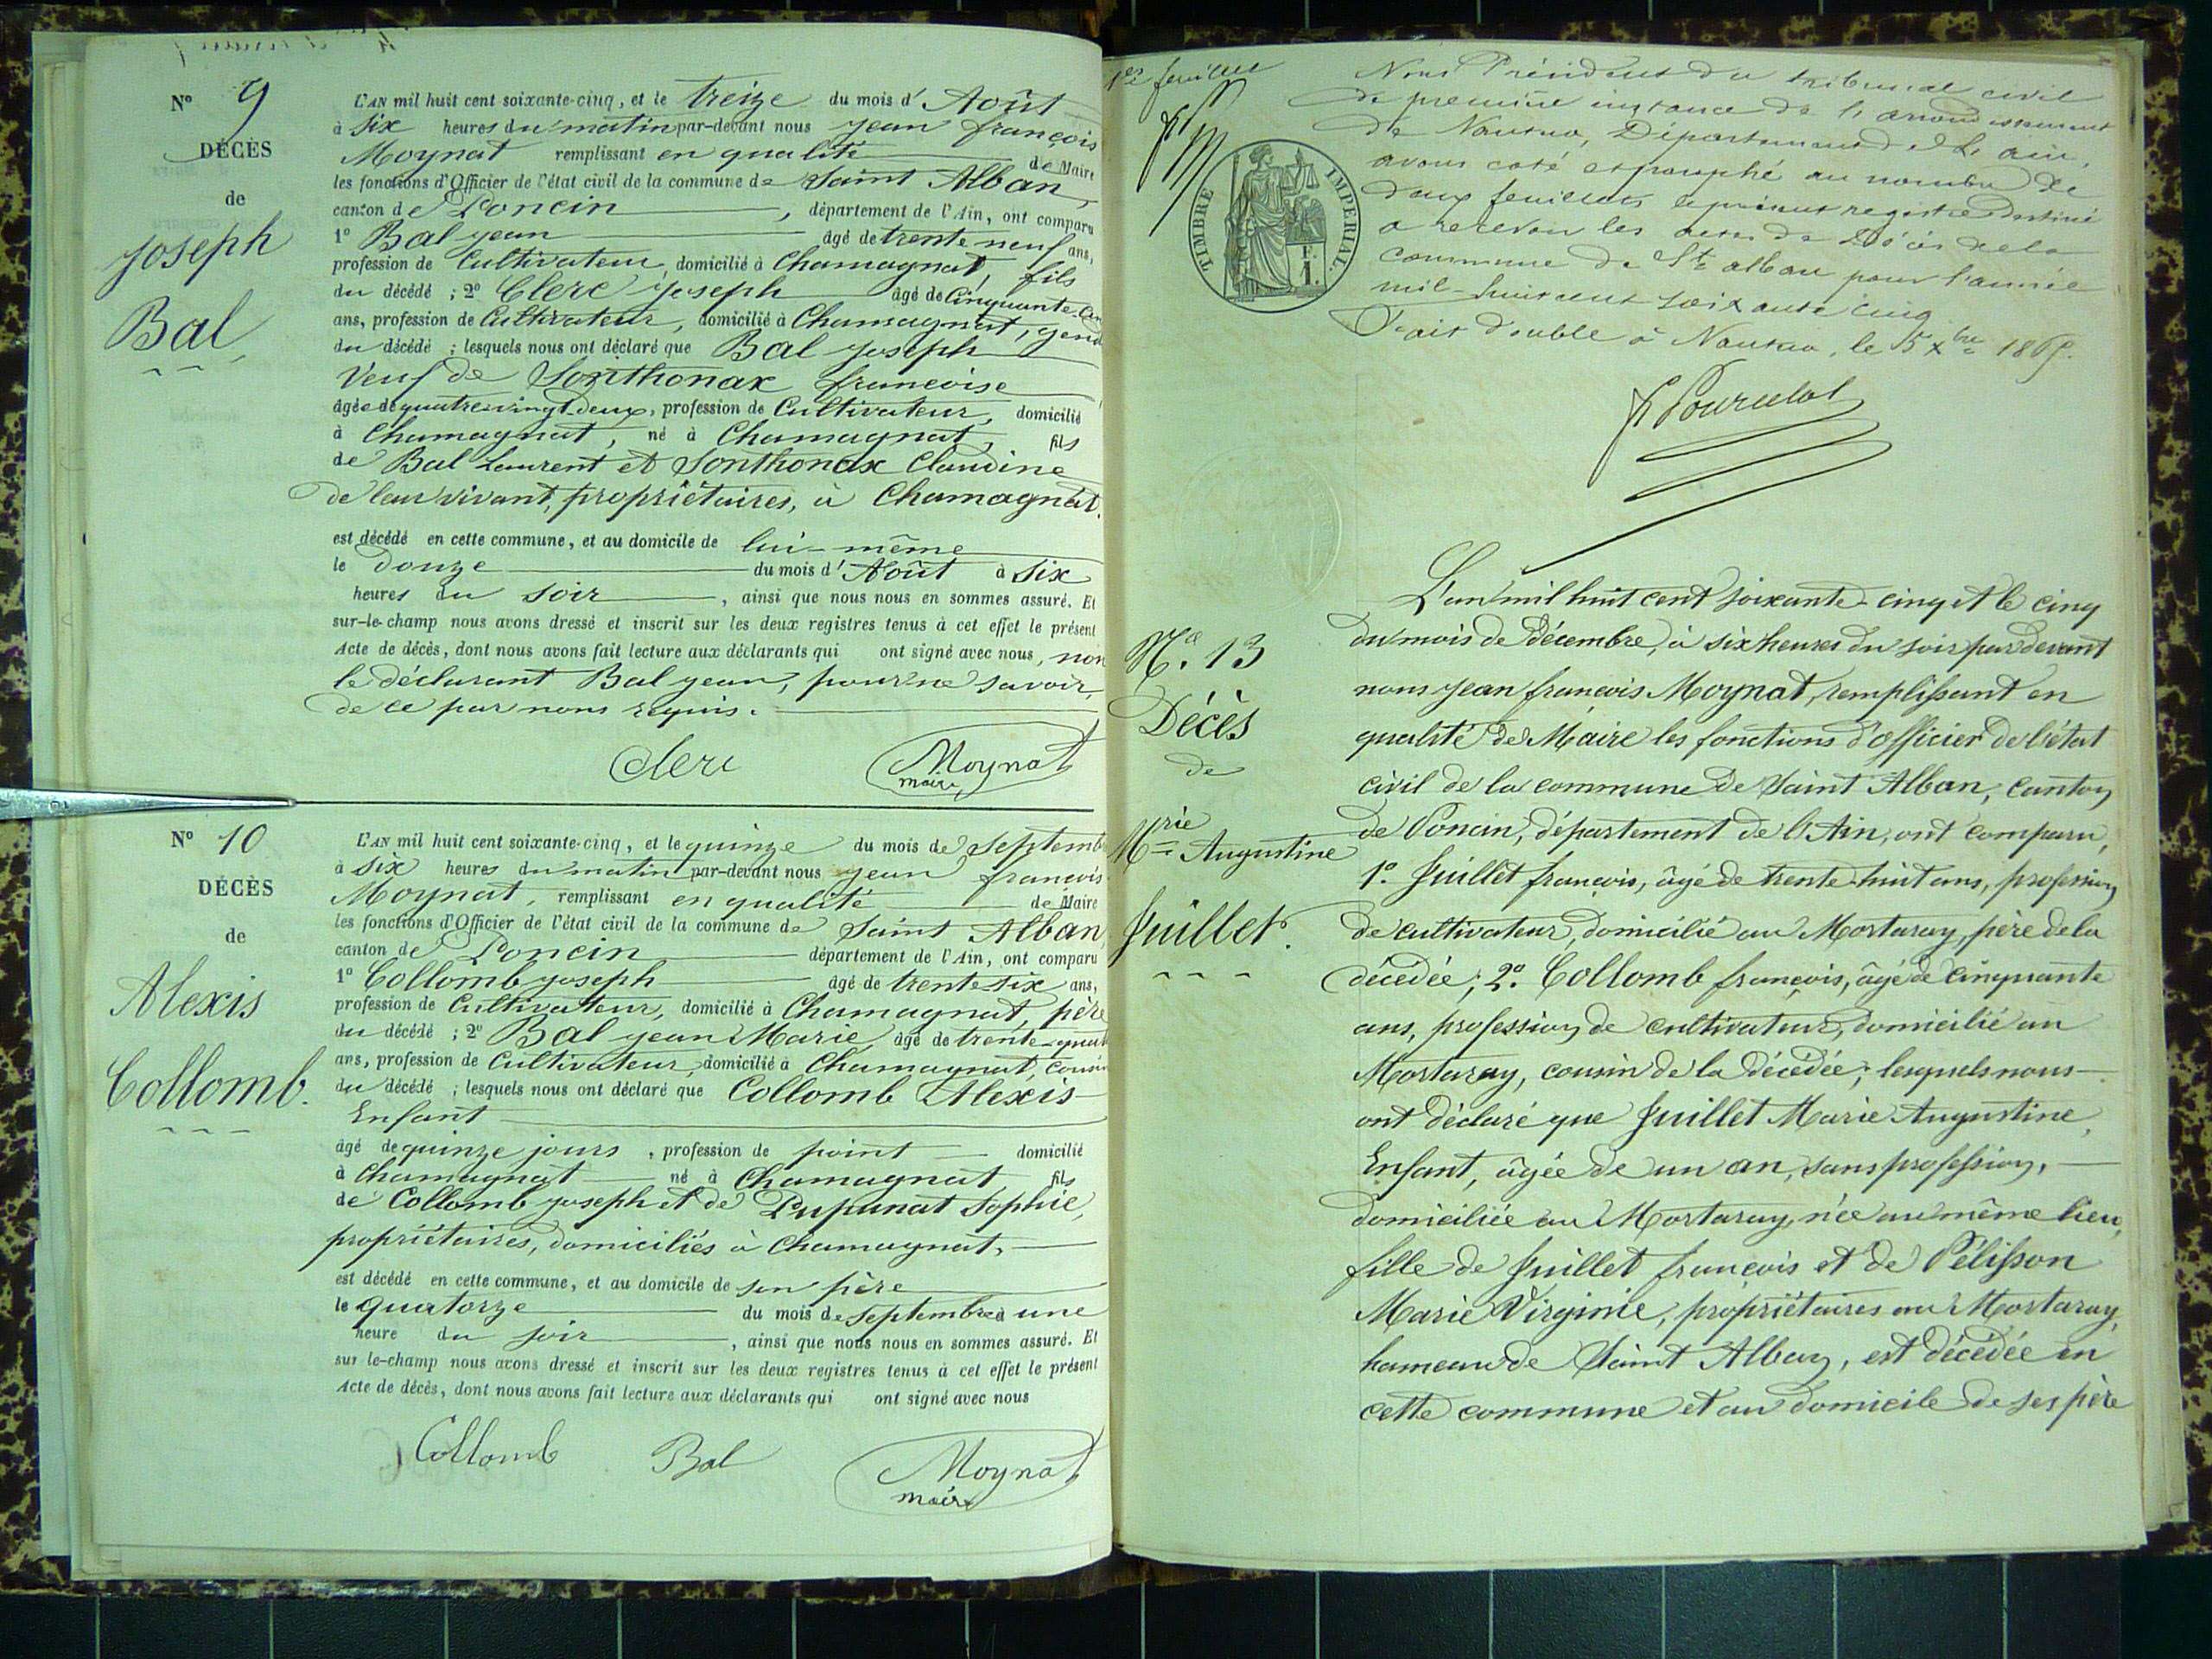 N° 9
DÉCÈS
de
Joseph
Bal
L'AN mil huit cent soixante-cinq, et le treize du mois d'Août
à six heures du matin par-devant nous Jean françois
Moynat remplissant en qualité de Maire
les fonctions d'Officier de l'état civil de la commune de Saint Alban,
canton de Poncin, département de l'Ain, ont comparu
1° Bal Jean âgé de trente neuf ans,
profession de Cultivateur, domicilié à Chamagnat, fils
du décédé ; 2° Clerc Joseph âgé de Cinquante
ans, profession de Cultivateur, domicilié à Chamagnat,
du décédé ; lesquels nous ont déclaré que Bal Joseph
Veuf de Sonthonax francoise
âgé de quatre vingt deux, profession de Cultivateur, domicilié
à Chamagnat, né à Chamagnat, fils
de Bal Laurent et Sonthonax Claudine
de leur vivant, propriétaires, à Chamagnat.
est décédé en cette commune, et au domicile de lui-même
le douze du mois d'Août à six
heures du soir, ainsi que nous nous en sommes assuré. Et
sur-le-champ nous avons dressé et inscrit sur les deux registres tenus à cet effet le présent
Acte de décès, dont nous avons fait lecture aux déclarants qui ont signé avec nous, non
le déclarant Bal Jean, pour ne savoir,
de ce par nous requis.
Clerc Moynat
maire
N° 10
DÉCÈS
de
Alexis
Collomb.
L'AN mil huit cent soixante-cinq, et le quinze du mois de Septemb
à six heures du matin par-devant nous Jean francois
Moynat, remplissant en qualité de Maire
les fonctions d'Officier de l'état civil de la commune de Saint Alban
canton de Poncin département de l'Ain, ont comparu
1° Collomb Joseph âgé de trente six ans,
profession de Cultivateur, domicilié à Chamagnat, père
du décédé ; 2° Bal Jean Marie, âgé de trente-quat
ans, profession de Cultivateur, domicilié à Chamagnat, cousin
du décédé ; lesquels nous ont déclaré que Collomb Alexis
Enfant
âgé de quinze jours, profession de point domicilié
à Chamagnat né à Chamagnat fils
de Collomb Joseph et de Pupunat Sophie,
propriétaires, domiciliés à Chamagnat,
est décédé en cette commune, et au domicile de son père
le quatorze du mois de septembre à une
heure du soir, ainsi que nous nous en sommes assuré. Et
sur le-champ nous avons dressé et inscrit sur les deux registres tenus à cet effet le présent
Acte de décès, dont nous avons fait lecture aux déclarants qui ont signé avec nous
Collomb Bal Moynat
maire
1er feuillet
Nous Président du tribunal civil
de première instance de l'arrondissement
de Nantua, Département de l'ain,
avons coté et paraphé au nombre de
deux feuillets le présent registre destiné
a recevoir les actes de Décès de la
commune de St alban pour l'année
mil-huit cent soixante cinq
Fait double à Nantua, le 5 Xbre 1865.
TIMBRE IMPÉRIAL.
N°. 13
Décès
de
Mrie Augustine
Juillet.
L'an mil huit cent soixante-cinq et le cinq
du mois de Décembre, à six heures du soir par devant
nous Jean françois Moynat, remplissant en
qualité de Maire les fonctions d'officier de l'état
civil de la commune de Saint Alban, canton
de Poncin, département de l'Ain, ont comparu,
1°. Juillet françois, âgé de trente-huit ans, profession
de cultivateur, domicilié au Mortaray, père de la
décédée; 2°. Collomb françois, âgé de cinquante
ans, profession de cultivateur, domicilié au
Mortaray, cousin de la décédée; lesquels nous
ont déclaré que Juillet Marie Augustine,
Enfant, âgée de un an, sans profession,
domiciliée au Mortaray, née au même lieu,
fille de Juillet françois et de Pélisson
Marie Virginie, propriétaires au Mortaray,
hameau de Saint Alban, est décédée en
cette commune et au domicile de ses père